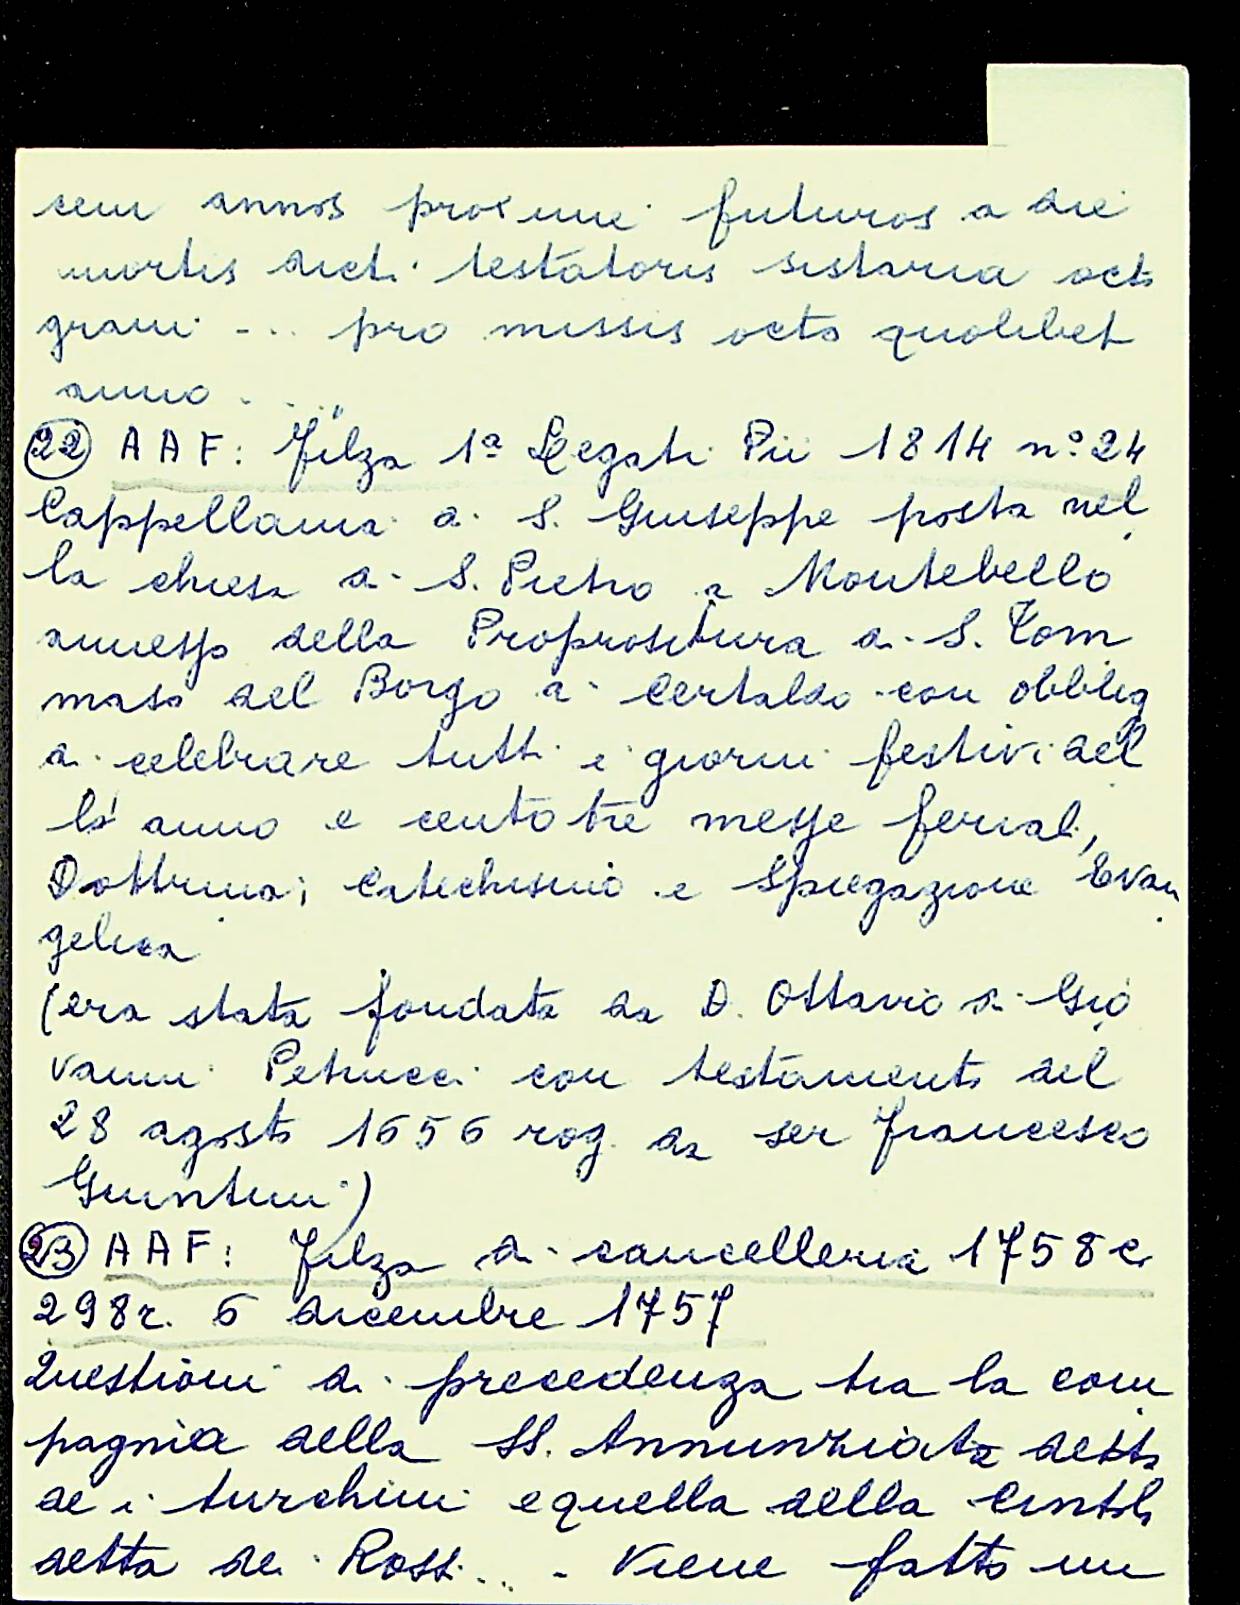 cem annos proxime futuros a die
mortis dicti testatoris sistaria octo
grani - ... pro missis octo quolibet
anno ...."
22 AAF: Filza 1ª Legati Pii 1814 n° 24
Cappellania di S. Giuseppe posta nel
la chiesa di S. Pietro a Montebello
annesso della Propositura di S. Tom
maso del Borgo di Certaldo con obblig
di celebrare tutti i giorni festivi del
lo' anno e cento tre messe feriali,
Dottrina; Catechismo e Spiegazione Evan
gelica
(era stata fondata da D. Ottavio di Gio
vanni Petrucci con testamento del
28 agosto 1656 rog. da ser Francesco
Guintini)
23 AAF: Filza di cancelleria 1758 c.
298r. 6 dicembre 1757
Questioni di precedenza tra la com
pagnia della SS. Annunziata detta
dei turchini e quella della
detta dei Rossi... - Viene fatto un